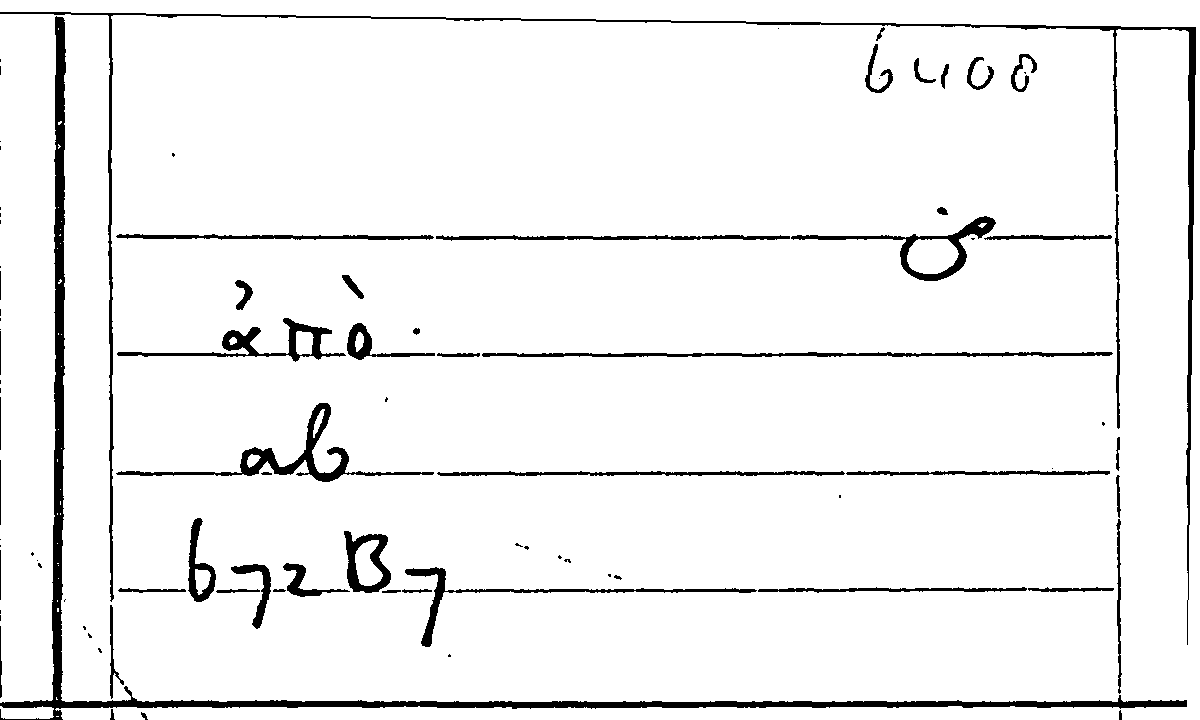 6408
من
ἀπὸ.
ab
672 B 7